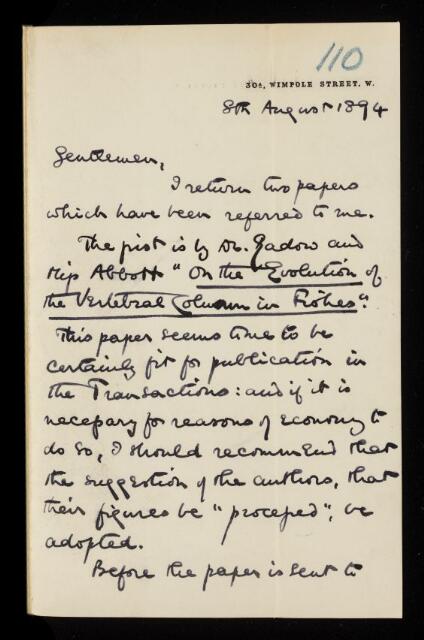 110
30A, WIMPOLE STREET, W.
8th August 1894
Gentlemen,
I return two papers
which have been referred to me.
The first is by Dr. Gadow and
Miss Abbott "On the "Evolution of
the Vertebral Column in Fishes".
This paper seems to me to be
certainly fit for publication in
the Transactions: and if it is
necessary for reasons of economy to
do so, I should recommend that
the suggestion of the authors, that
their figures be "processed", be
adopted.
Before the paper is sent to